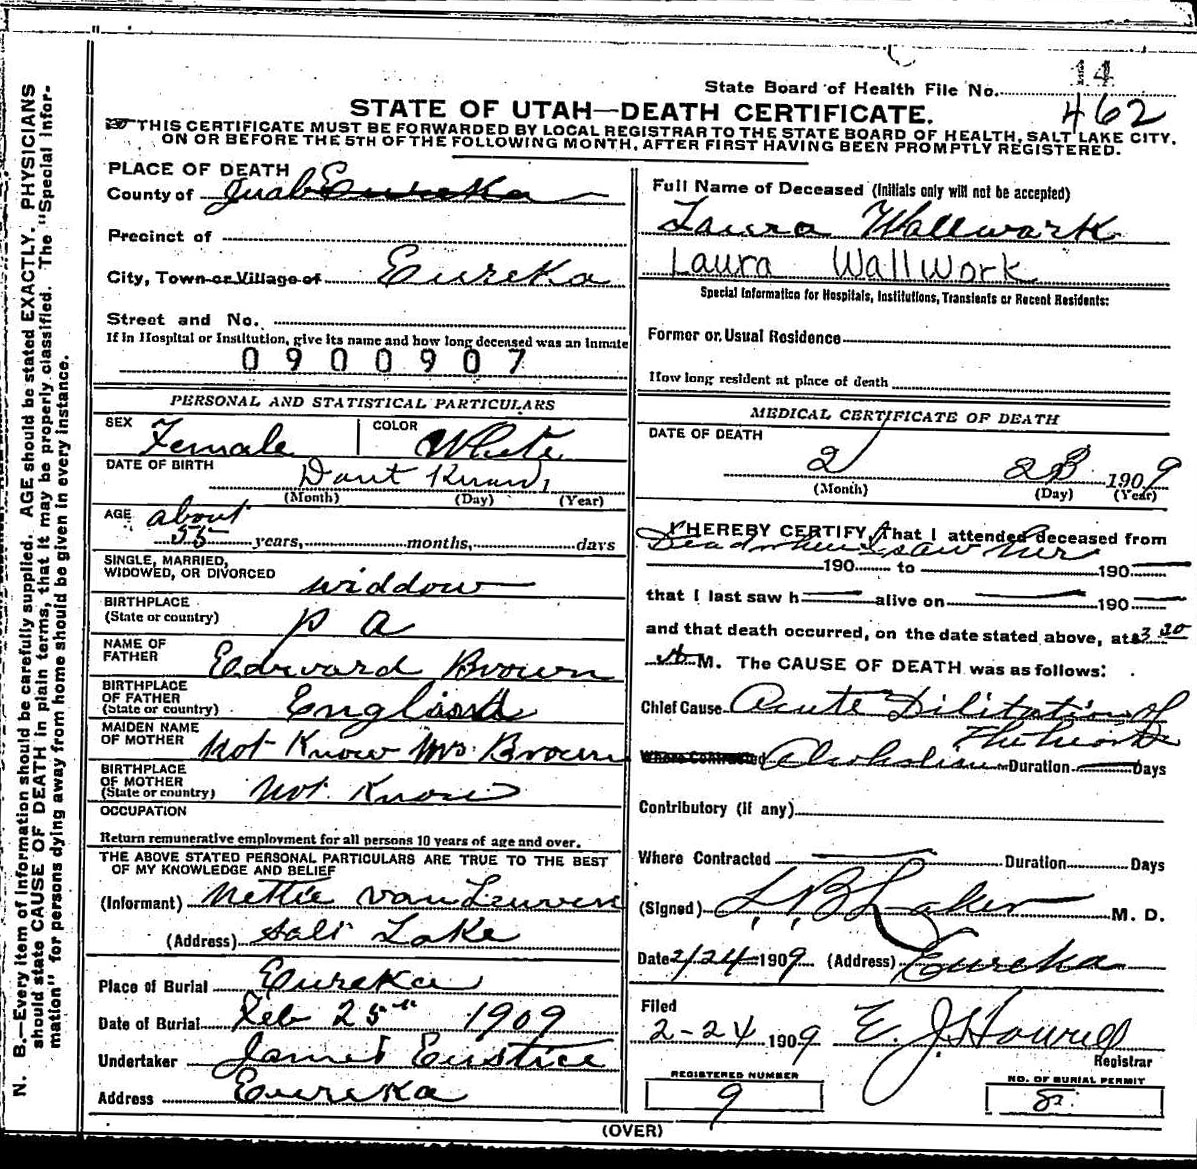 State Board of Health File No. 14
462
STATE OF UTAH—DEATH CERTIFICATE.
THIS CERTIFICATE MUST BE FORWARDED BY LOCAL REGISTRAR TO THE STATE BOARD OF HEALTH, SALT LAKE CITY,
ON OR BEFORE THE 5TH OF THE FOLLOWING MONTH, AFTER FIRST HAVING BEEN PROMPTLY REGISTERED.
N. B.—Every item of information should be carefully supplied. AGE should be stated EXACTLY. PHYSICIANS
should state CAUSE OF DEATH in plain terms, that it may be properly classified. The "Special Infor-
mation" for persons dying away from home should be given in every instance.
PLACE OF DEATH
County of Juab Eureka
Precinct of
City, Town or Village of Eureka
Street and No.
If in Hospital or Institution, give its name and how long deceased was an inmate
0900907
PERSONAL AND STATISTICAL PARTICULARS
SEX Female COLOR White
DATE OF BIRTH Dont Know
(Month) (Day) (Year)
AGE about
55 years, months, days
SINGLE, MARRIED,
WIDOWED, OR DIVORCED widdow
BIRTHPLACE
(State or country) P a
NAME OF
FATHER Edward Brown
BIRTHPLACE
OF FATHER
(State or country) England
MAIDEN NAME
OF MOTHER Not Know Mrs Brown
BIRTHPLACE
OF MOTHER
(State or country) Not Know
OCCUPATION
Return remunerative employment for all persons 10 years of age and over.
THE ABOVE STATED PERSONAL PARTICULARS ARE TRUE TO THE BEST
OF MY KNOWLEDGE AND BELIEF
(Informant) Nettie van Leuven
(Address) Salt Lake
Place of Burial Eureka
Date of Burial Feb 25th 1909
Undertaker James Eustice
Address Eureka
Full Name of Deceased (Initials only will not be accepted)
Laura Wallwark
Laura Wallwork
Special Information for Hospitals, Institutions, Transients or Recent Residents:
Former or Usual Residence
How long resident at place of death
MEDICAL CERTIFICATE OF DEATH
DATE OF DEATH
2 23 1909
(Month) (Day) (Year)
I HEREBY CERTIFY, That I attended deceased from
Dead when I saw her
190 to 190
that I last saw h alive on 190
and that death occurred, on the date stated above, at 3 20
A M. The CAUSE OF DEATH was as follows:
Chief Cause Acute Dilitation of
the heart
Where Contracted Alcoholism Duration Days
Contributory (if any)
Where Contracted Duration Days
(Signed) L. B. Laker M. D.
Date 2/24 1909 (Address) Eureka
Filed
2-24 1909 E. J. Howell
Registrar
REGISTERED NUMBER
9
NO. OF BURIAL PERMIT
8
(OVER)